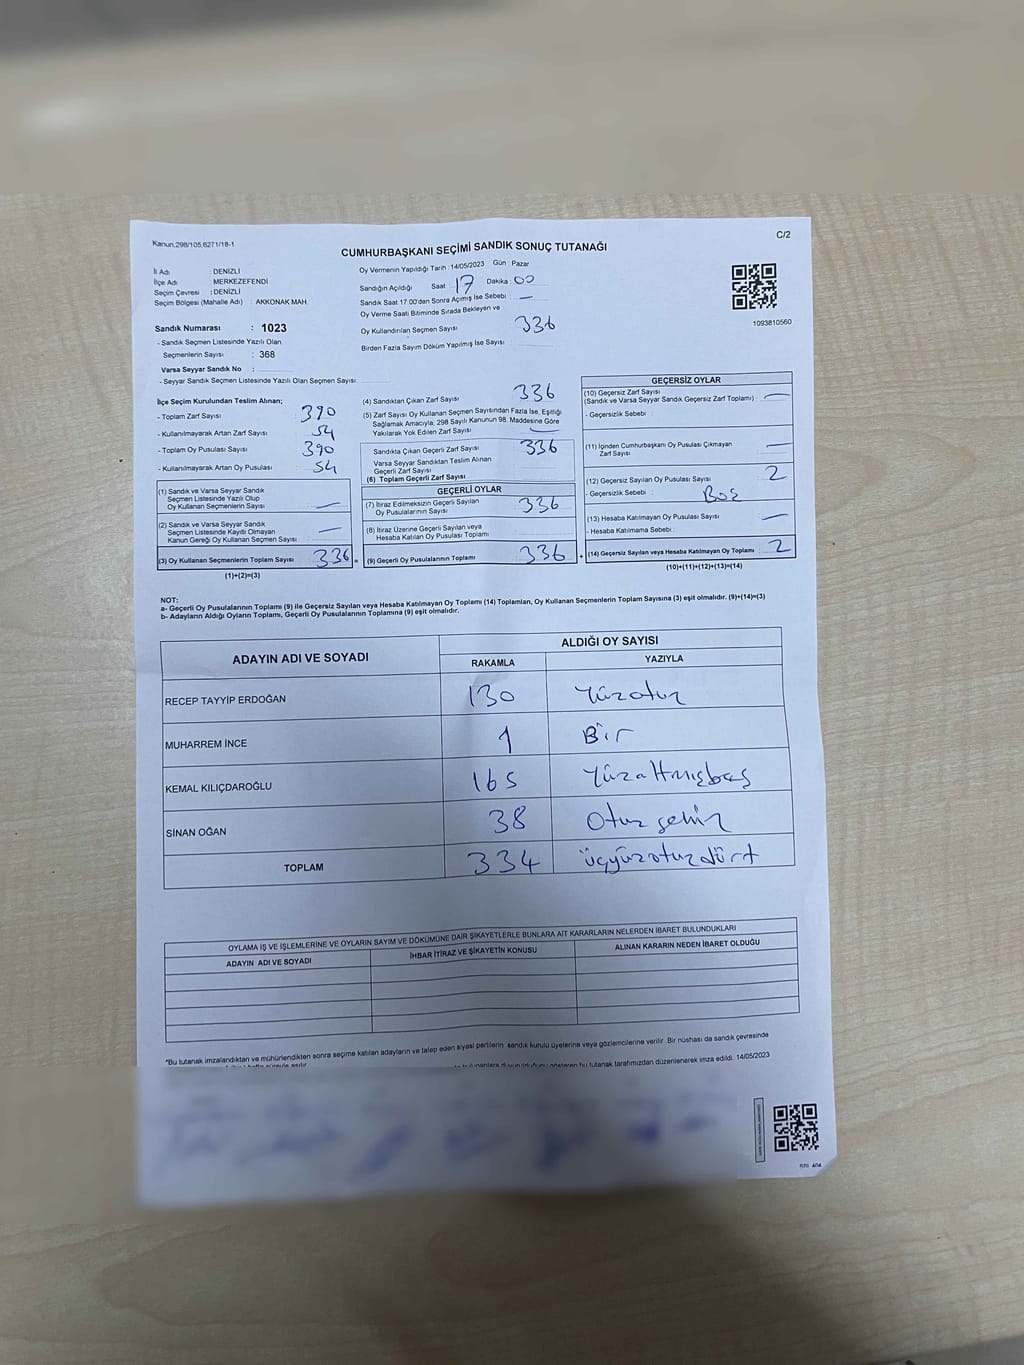 Kanun.298/105.6271/18-1
C/2
CUMHURBAŞKANI SEÇİMİ SANDIK SONUÇ TUTANAĞI
İl Adı : DENİZLİ
İlçe Adı : MERKEZEFENDİ
Seçim Çevresi : DENİZLİ
Seçim Bölgesi (Mahalle Adı) : AKKONAK MAH.
Sandık Numarası : 1023
- Sandık Seçmen Listesinde Yazılı Olan
Seçmenlerin Sayısı : 368
Varsa Seyyar Sandık No :
- Seyyar Sandık Seçmen Listesinde Yazılı Olan Seçmen Sayısı:
Oy Vermenin Yapıldığı Tarih :14/05/2023 Gün : Pazar
Sandığın Açıldığı Saat 17 Dakika 00
Sandık Saat 17.00'den Sonra Açılmış İse Sebebi : —
Oy Verme Saati Bitiminde Sırada Bekleyen ve
Oy Kullandırılan Seçmen Sayısı 336
Birden Fazla Sayım Döküm Yapılmış İse Sayısı :
1093810560
İlçe Seçim Kurulundan Teslim Alınan;
- Toplam Zarf Sayısı 390
- Kullanılmayarak Artan Zarf Sayısı 54
- Toplam Oy Pusulası Sayısı 390
- Kullanılmayarak Artan Oy Pusulası 54
(1) Sandık ve Varsa Seyyar Sandık
Seçmen Listesinde Yazılı Olup
Oy Kullanan Seçmenlerin Sayısı —
(2) Sandık ve Varsa Seyyar Sandık
Seçmen Listesinde Kayıtlı Olmayan
Kanun Gereği Oy Kullanan Seçmen Sayısı —
(3) Oy Kullanan Seçmenlerin Toplam Sayısı 336 =
(1)+(2)=(3)
(4) Sandıktan Çıkan Zarf Sayısı 336
(5) Zarf Sayısı Oy Kullanan Seçmen Sayısından Fazla İse, Eşitliği
Sağlamak Amacıyla, 298 Sayılı Kanunun 98. Maddesine Göre
Yakılarak Yok Edilen Zarf Sayısı —
Sandıkta Çıkan Geçerli Zarf Sayısı 336
Varsa Seyyar Sandıktan Teslim Alınan
Geçerli Zarf Sayısı
(6) Toplam Geçerli Zarf Sayısı
GEÇERLİ OYLAR
(7) İtiraz Edilmeksizin Geçerli Sayılan
Oy Pusulalarının Sayısı 336
(8) İtiraz Üzerine Geçerli Sayılan veya
Hesaba Katılan Oy Pusulası Toplamı
(9) Geçerli Oy Pusulalarının Toplamı 336 +
GEÇERSİZ OYLAR
(10) Geçersiz Zarf Sayısı
(Sandık ve Varsa Seyyar Sandık Geçersiz Zarf Toplamı) : —
- Geçersizlik Sebebi :
(11) İçinden Cumhurbaşkanı Oy Pusulası Çıkmayan
Zarf Sayısı —
(12) Geçersiz Sayılan Oy Pusulası Sayısı 2
- Geçersizlik Sebebi : Boş
(13) Hesaba Katılmayan Oy Pusulası Sayısı —
- Hesaba Katılmama Sebebi :
(14) Geçersiz Sayılan veya Hesaba Katılmayan Oy Toplamı 2
(10)+(11)+(12)+(13)=(14)
NOT:
a- Geçerli Oy Pusulalarının Toplamı (9) ile Geçersiz Sayılan veya Hesaba Katılmayan Oy Toplamı (14) Toplamları, Oy Kullanan Seçmenlerin Toplam Sayısına (3) eşit olmalıdır. (9)+(14)=(3)
b- Adayların Aldığı Oyların Toplamı, Geçerli Oy Pusulalarının Toplamına (9) eşit olmalıdır.
ADAYIN ADI VE SOYADI
ALDIĞI OY SAYISI
RAKAMLA YAZIYLA
RECEP TAYYİP ERDOĞAN 130 Yüzotuz
MUHARREM İNCE 1 Bir
KEMAL KILIÇDAROĞLU 165 Yüzaltmışbeş
SİNAN OĞAN 38 Otuz sekiz
TOPLAM 334 üçyüzotuzdört
OYLAMA İŞ VE İŞLEMLERİNE VE OYLARIN SAYIM VE DÖKÜMÜNE DAİR ŞİKAYETLERLE BUNLARA AİT KARARLARIN NELERDEN İBARET BULUNDUKLARI
ADAYIN ADI VE SOYADI İHBAR İTİRAZ VE ŞİKAYETİN KONUSU ALINAN KARARIN NEDEN İBARET OLDUĞU
*Bu tutanak imzalandıktan ve mühürlendikten sonra seçime katılan adayların ve talep eden siyasi partilerin sandık kurulu üyelerine veya gözlemcilerine verilir. Bir nüshası da sandık çevresinde
bu tutanak tarafımızdan düzenlenerek imza edildi. 14/05/2023